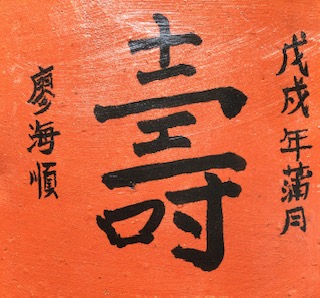 戊戌年蒲月
壽
廖海順